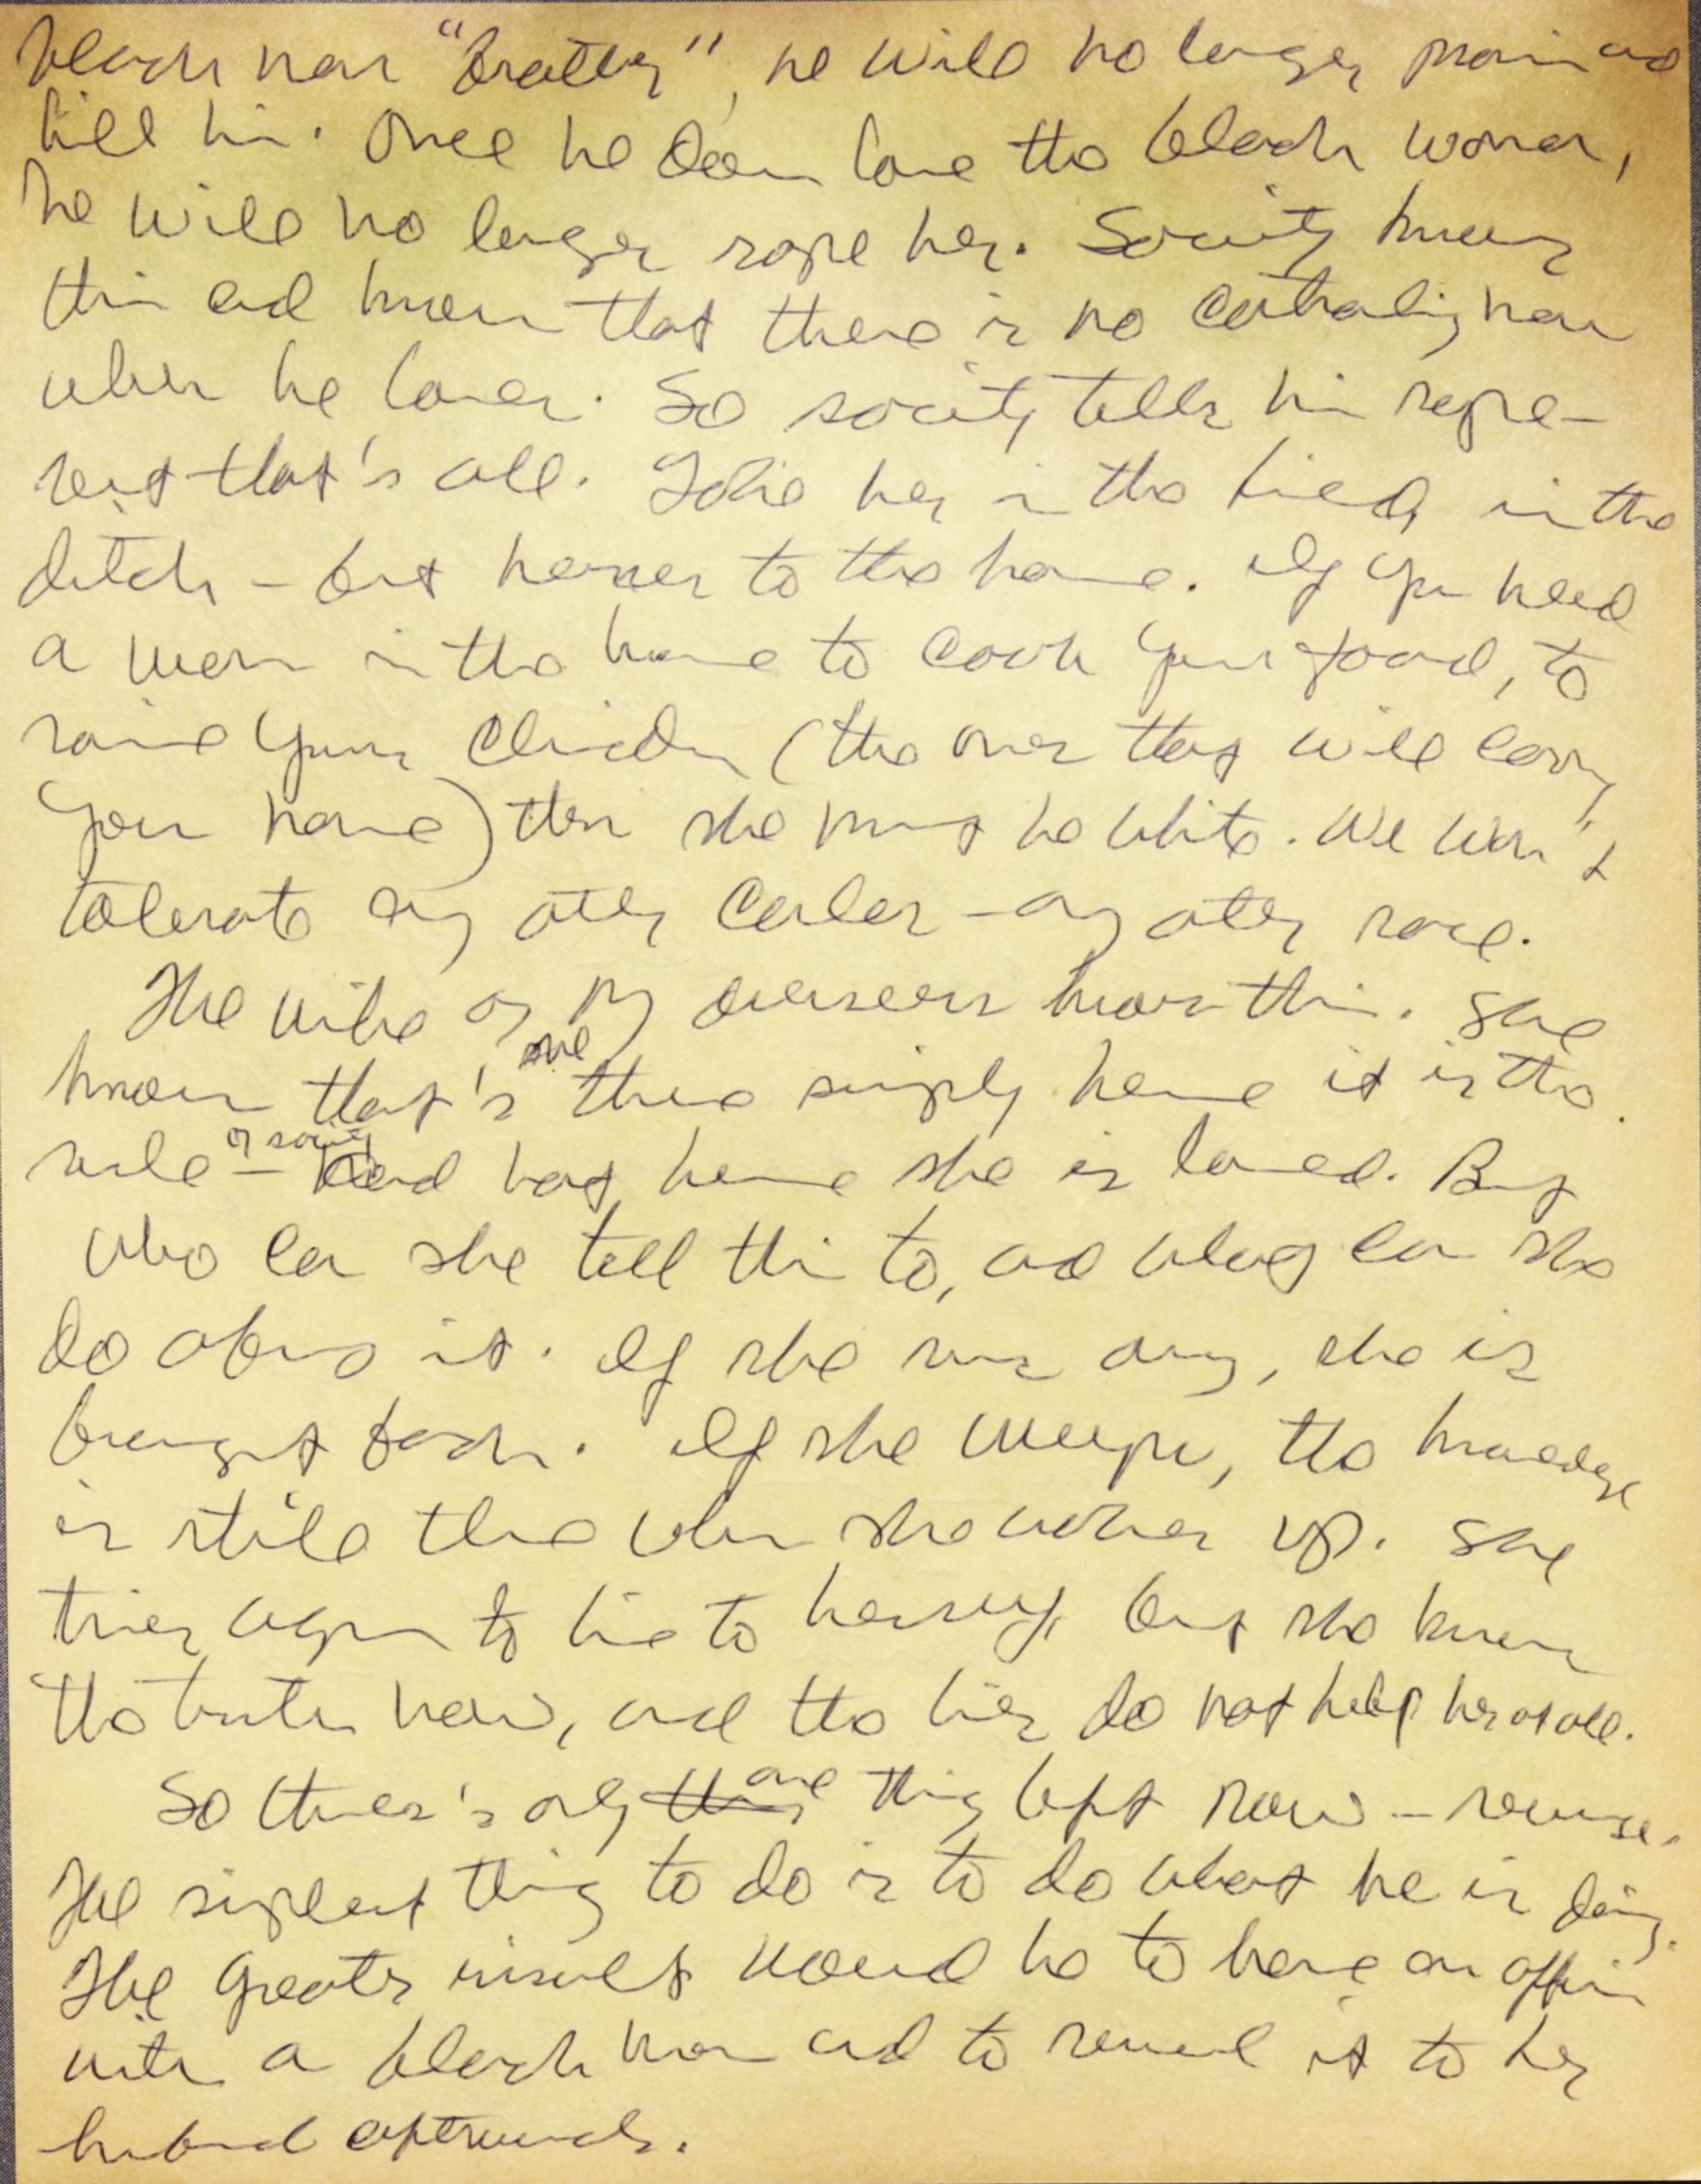 black man "brother", he will no longer maim and
kill him. Once he does love the black woman,
he will no longer rape her. Society knows
this and knows that there is no controling man
when he loves. So society tells him rape –
rest that's all. Take her in the field, in the
ditch – but never to the home. If you need
a woman in the home to cook your food, to
raise your children (the ones that will carry
your name) then she must be white. We won't
tolerate any other color – any other race.
The wife of my overseer knows this. She
knows that she's there simply because it is the
rule of society – and not because she is loved. But
who can she tell this to, and what can she
do about it. If she runs away, she is
brought back. If she weeps, the knowledge
is still there when she wakes up. She
tries again to lie to herself, but she knows
the truth now, and the lies do not help her at all.
So there's only one thing left now – revenge.
The simplest thing to do is to do what he is doing.
The greater insult would be to have an affair
with a black man and to reveal it to her
husband afterwards.